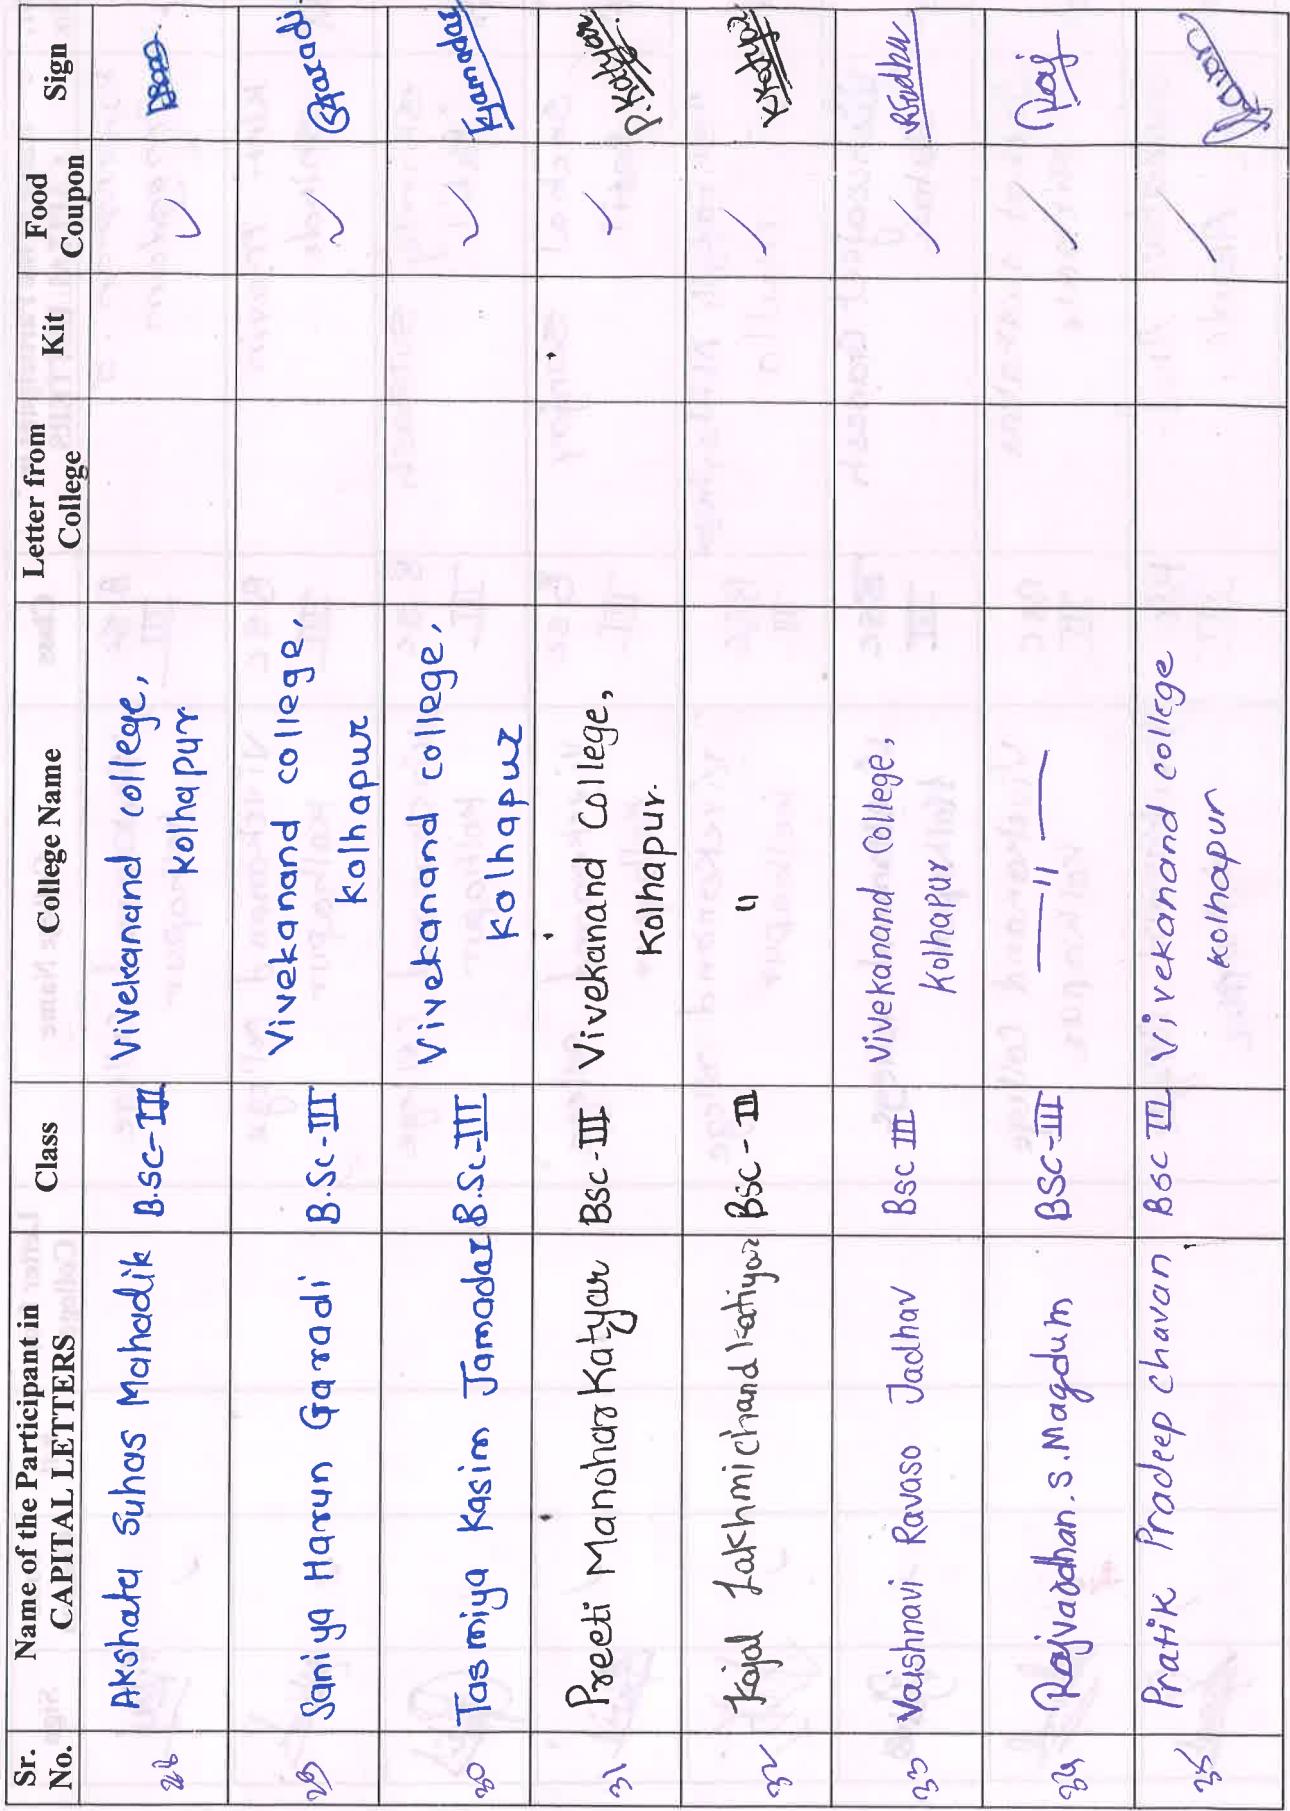 Sr. No. Name of the Participant in CAPITAL LETTERS Class College Name Letter from College Kit Food Coupon Sign
28 Akshata Suhas Mahadik B.Sc-III Vivekanand college, Kolhapur ✓
29 Saniya Harun Garadi B.Sc-III Vivekanand college, Kolhapur ✓ Garadi
30 Tasmiya Kasim Jamadar B.Sc-III Vivekanand college, Kolhapur ✓ Jamadar
31 Preeti Manohar Katyar Bsc-III Vivekanand College, Kolhapur. ✓ P.Katyar
32 Kajal Lakhmichand Katiyar Bsc-III " ✓
33 Vaishnavi Ravaso Jadhav Bsc III Vivekanand College, Kolhapur ✓
34 Rajvardhan.S.Magdum BSC-III —"— ✓ Raj
35 Pratik Pradeep Chavan Bsc III Vivekanand college Kolhapur ✓ Chavan